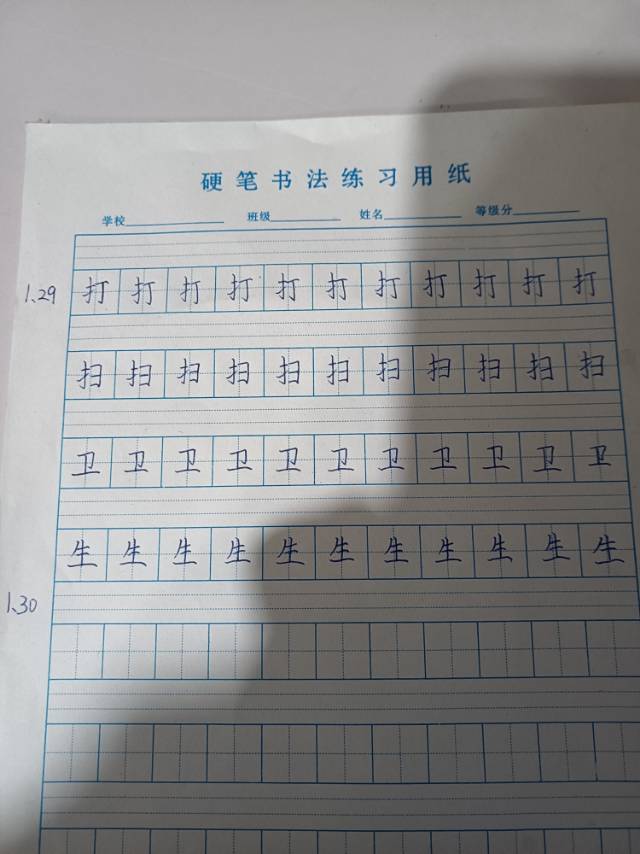 硬笔书法练习用纸
学校 班级 姓名 等级分
1、29 打 打 打 打 打 打 打 打 打 打 打
扫 扫 扫 扫 扫 扫 扫 扫 扫 扫 扫
卫 卫 卫 卫 卫 卫 卫 卫 卫 卫 卫
生 生 生 生 生 生 生 生 生 生 生
1、30